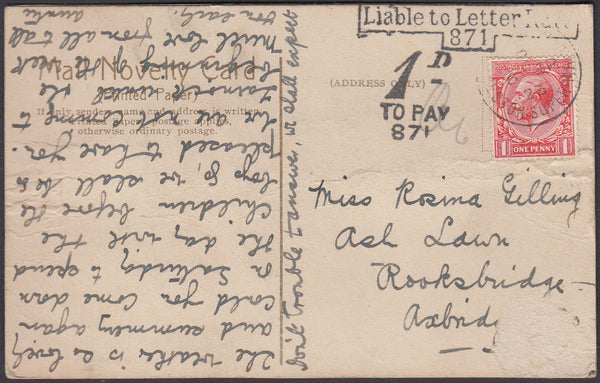 Liable to Letter Rate
871
1D
TO PAY
871
ONE PENNY
Mail Novelty Card
(Printed Paper)
(ADDRESS ONLY)
If only sender's name and address is written
printed paper postage applies,
otherwise ordinary postage.
Miss Rosina Gilling
Ash Lawn
Rooksbridge
Axbridg
The weather is so lovely
and summery again
could you come down
on Saturday to spend
the day with the
children before the
boys go, we shall be so
pleased to have you.
We are not going to
until the
beginning of the week
Much love from all to all
Auntie
don't trouble to answer, we shall expect
you early.